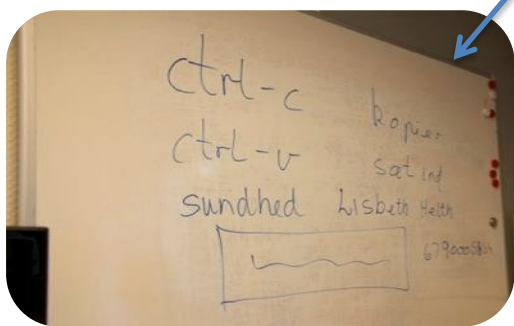 ctrl-c kopier
ctrl-v sæt ind
sundhed Lisbeth Helth